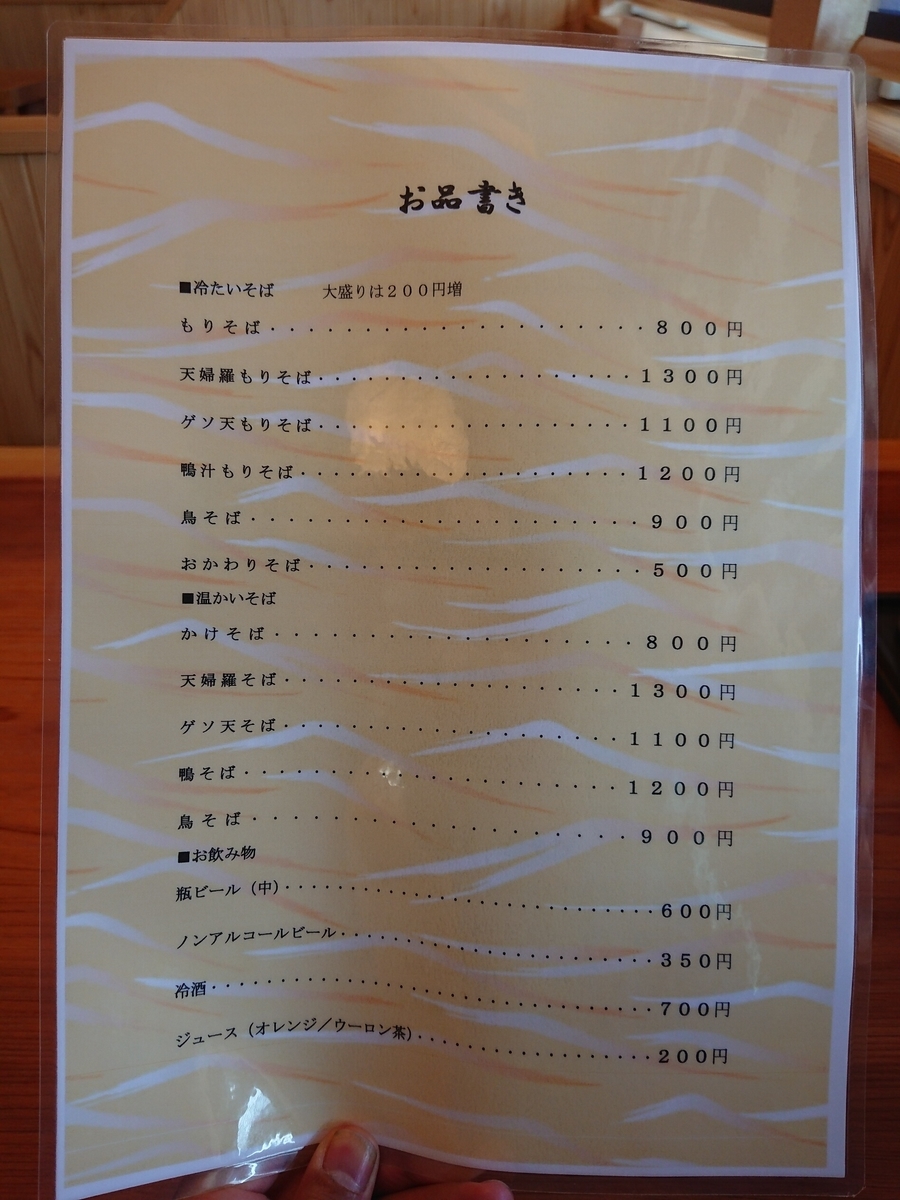 お品書き
■冷たいそば　　大盛りは２００円増
もりそば・・・・・・・・・・・・・・・・・・・・８００円
天婦羅もりそば・・・・・・・・・・・・・・・・・１３００円
ゲソ天もりそば・・・・・・・・・・・・・・・・・１１００円
鴨汁もりそば・・・・・・・・・・・・・・・・・・１２００円
鳥そば・・・・・・・・・・・・・・・・・・・・・９００円
おかわりそば・・・・・・・・・・・・・・・・・・５００円
■温かいそば
かけそば・・・・・・・・・・・・・・・・・・・・８００円
天婦羅そば・・・・・・・・・・・・・・・・・・・１３００円
ゲソ天そば・・・・・・・・・・・・・・・・・・・１１００円
鴨そば・・・・・・・・・・・・・・・・・・・・・１２００円
鳥そば・・・・・・・・・・・・・・・・・・・・・９００円
■お飲み物
瓶ビール（中）・・・・・・・・・・・・・・・・・・・・・・・６００円
ノンアルコールビール・・・・・・・・・・・・・・・・・・・・３５０円
冷酒・・・・・・・・・・・・・・・・・・・・・・・・・・・・７００円
ジュース（オレンジ／ウーロン茶）・・・・・・・・・・・・・・・２００円